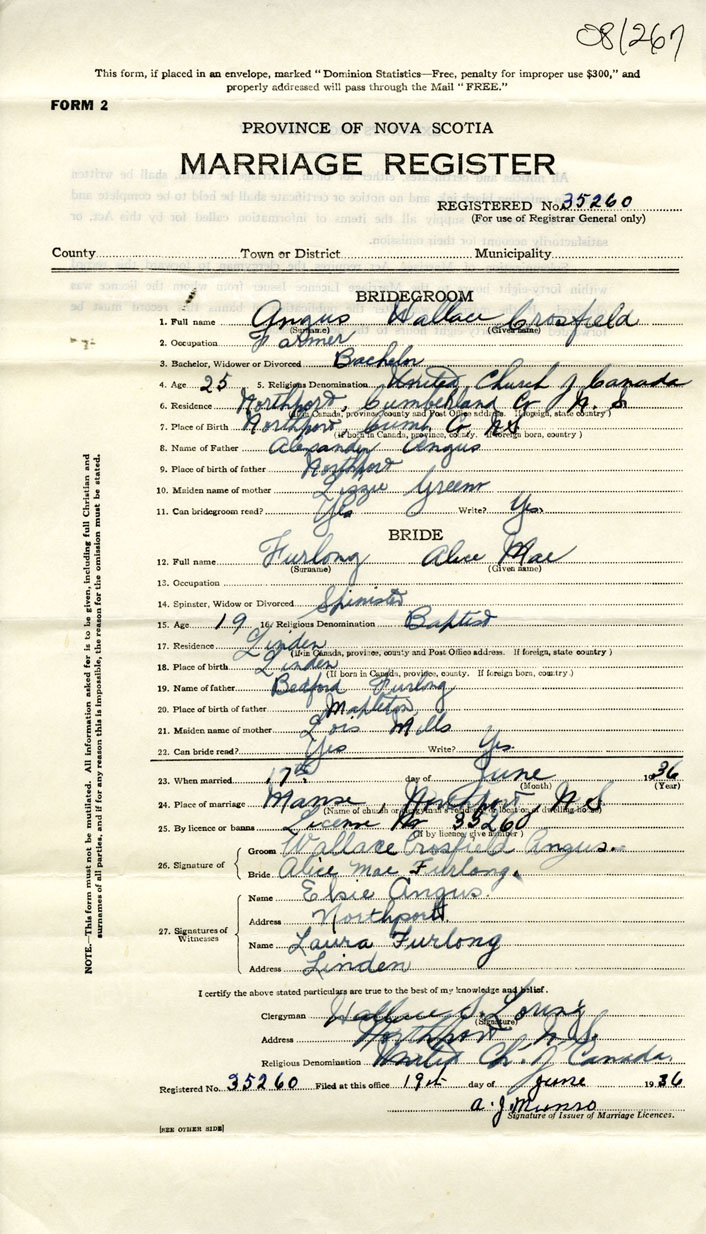 08/267
This form, if placed in an envelope, marked "Dominion Statistics—Free, penalty for improper use $300," and
properly addressed will pass through the Mail "FREE."
FORM 2
PROVINCE OF NOVA SCOTIA
MARRIAGE REGISTER
REGISTERED No. 35260
(For use of Registrar General only)
County Town or District Municipality
BRIDEGROOM
1. Full name Angus Wallace Crosfield
(Surname) (Given name)
2. Occupation Farmer
3. Bachelor, Widower or Divorced Bachelor
4. Age 25 5. Religious Denomination United Church of Canada
6. Residence Northport, Cumberland Co N. S
(If in Canada, province, county and Post Office address. If foreign, state country)
7. Place of Birth Northport, Cumb. Co NS
(If born in Canada, province, county. If foreign born, country)
8. Name of Father Alexander Angus
9. Place of birth of father Northport
10. Maiden name of mother Lizzie Green
11. Can bridegroom read? Yes Write? Yes
BRIDE
12. Full name Furlong Alice Mae
(Surname) (Given name)
13. Occupation
14. Spinster, Widow or Divorced Spinster
15. Age 19 16. Religious Denomination Baptist
17. Residence Linden
(If in Canada, province, county and Post Office address. If foreign, state country)
18. Place of birth Linden
(If born in Canada, province, county. If foreign born, country)
19. Name of father Bedford Furlong
20. Place of birth of father Mapleton
21. Maiden name of mother Lois Mills
22. Can bride read? Yes Write? Yes.
23. When married 17th day of June 1936
(Month) (Year)
24. Place of marriage Manse, Northport, N.S.
(Name of church or clergyman's residence or location of dwelling house)
25. By licence or banns License No 35260
(If by licence give number)
26. Signature of
Groom Wallace Crosfield Angus.
Bride Alice Mae Furlong.
27. Signatures of Witnesses
Name Elsie Angus.
Address Northport
Name Laura Furlong
Address Linden
I certify the above stated particulars are true to the best of my knowledge and belief.
Clergyman Wallace
(Signature)
Address Northport N.S.
Religious Denomination United Ch. of Canada.
Registered No. 35260 Filed at this office 19th day of June 1936
A. J. Munro
Signature of Issuer of Marriage Licences.
[SEE OTHER SIDE]
NOTE.—This form must not be mutilated. All information asked for is to be given, including full Christian and
surnames of all parties, and if for any reason this is impossible, the reason for the omission must be stated.